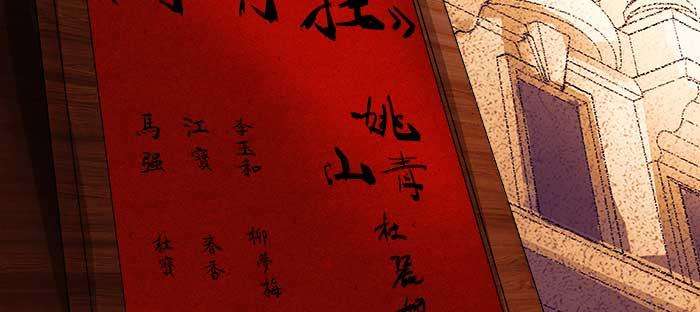 姚青
山
杜麗
李玉和
柳夢梅
江寶
春香
馬强
杜寶